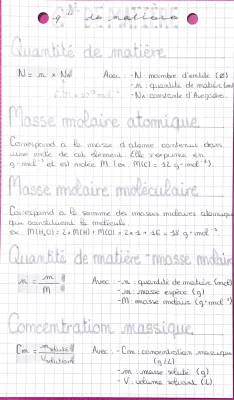 Quantité de matière
N = n × Na
Avec : - N : nombre d'entité (Ø)
- n : quantité de matière (mol)
- Na : constante d'Avogadro
Masse molaire atomique
Correspond à la masse d'atome contenue dans
une mole de cet élément. Elle s'exprime en
g·mol⁻¹ et est notée M (ex : M(C) = 12 g·mol⁻¹).
Masse molaire moléculaire
Correspond à la somme des masses molaires atomiques
qui constituent la molécule.
ex : M(H₂O) = 2×M(H) + M(O) = 2×1 + 16 = 18 g·mol⁻¹
Quantité de matière - masse molaire
n = m / M
Avec : - n : quantité de matière (mol)
- m : masse espèce (g)
- M : masse molaire (g·mol⁻¹)
Concentration massique
Cm = m soluté / V solution
Avec : - Cm : concentration massique
(g/L)
- m : masse soluté (g)
- V : volume solvant (L)